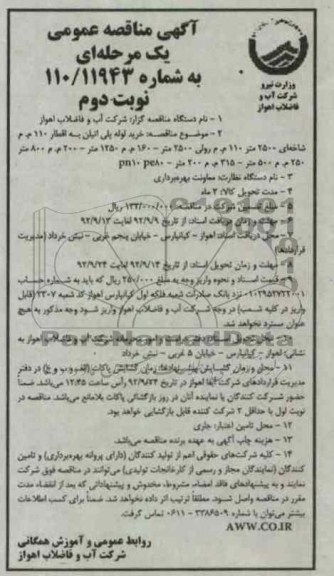 آگهی مناقصه عمومی
یک مرحله‌ای
به شماره ۱۱۰/۱۱۹۴۳
نوبت دوم
وزارت نیرو
شرکت آب و
فاضلاب اهواز
۱ - نام دستگاه مناقصه گزار: شرکت آب و فاضلاب اهواز
۲ - موضوع مناقصه: خرید لوله پلی اتیلن به اقطار ۱۱۰ م م
شاخه‌ای ۲۵۰۰ متر ۱۱۰ م م رولی ۲۵۰۰ متر - ۱۶۰ م م ۱۲۵۰ متر - ۲۰۰ م م ۸۰۰ متر
۲۵۰ م م ۵۰۰ متر - ۳۱۵ م م ۲۰۰ متر - pn10 pe80
۳ - دستگاه نظارت: معاونت بهره‌برداری
۴ - مدت تحویل کالا: ۲ ماه
مبلغ تضمین شرکت در مناقصه: ریال
مهلت و زمان دریافت اسناد: از تاریخ ۹۲/۹/۹ لغایت ۹۲/۹/۱۳
۷ - محل دریافت اسناد: اهواز - کیانپارس - خیابان پنجم غربی - نبش خرداد (مدیریت
قراردادها)
مهلت و زمان تحویل اسناد: از تاریخ ۹۲/۹/۱۴ لغایت ۹۲/۹/۲۴
قیمت اسناد و نحوه واریز وجه به مبلغ ۲۵۰/۰۰۰ ریال که باید به شماره حساب
نزد بانک صادرات شعبه فلکه اول کیانپارس اهواز کد شعبه ۲۳۰۷ (قابل
واریز در کلیه شعب) در وجه شرکت آب و فاضلاب اهواز واریز شود وجه مذکور به هیچ
عنوان مسترد نخواهد شد.
محل تحویل اسناد: شرکت آب و فاضلاب اهواز به
نشانی: اهواز - کیانپارس - خیابان ۵ غربی - نبش خرداد
۱۱ - محل و زمان گشایش پیشنهادها: زمان گشایش پاکات (الف و ب و ج) در دفتر
مدیریت قراردادهای شرکت آبفا اهواز در تاریخ ۹۲/۹/۲۴ رأس ساعت ۱۲:۴۵ می‌باشد. ضمناً
حضور شرکت کنندگان یا نماینده آنان در روز بازگشائی پاکات بلامانع می‌باشد. مناقصه در
نوبت اول با حداقل ۲ شرکت کننده قابل بازگشایی خواهد بود.
۱۲ - محل تامین اعتبار: جاری
۱۳ - هزینه چاپ آگهی به عهده برنده مناقصه می‌باشد.
۱۴ - کلیه شرکت‌های حقوقی اعم از تولید کنندگان (دارای پروانه بهره‌برداری) و تامین
کنندگان (نمایندگان مجاز و رسمی از کارخانجات تولیدی) می‌توانند در مناقصه فوق شرکت
نمایند و به پیشنهادهای فاقد امضاء، مشروط، مخدوش و پیشنهاداتی که بعد از انقضاء مدت
مقرر در مناقصه واصل شود، مطلقا ترتیب اثر داده نخواهد شد. ضمناً برای کسب اطلاعات
بیشتر می‌توان با شماره ۳۳۸۶۵۰۹ - ۰۶۱۱ تماس گرفت.
AWW.CO.IR
روابط عمومی و آموزش همگانی
شرکت آب و فاضلاب اهواز